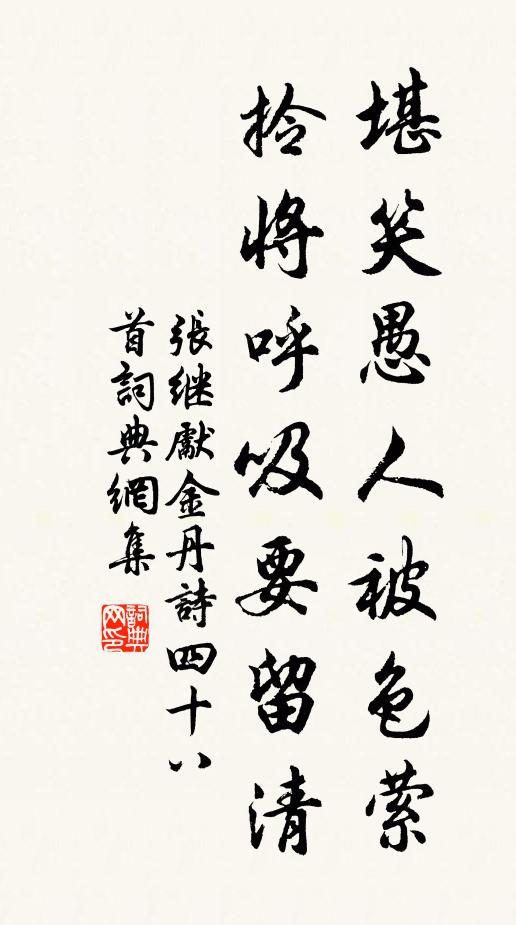 堪笑愚人被色萦
拎将呼吸要留清
張継獻金丹詩四十八
首詞典網集
詞典网印